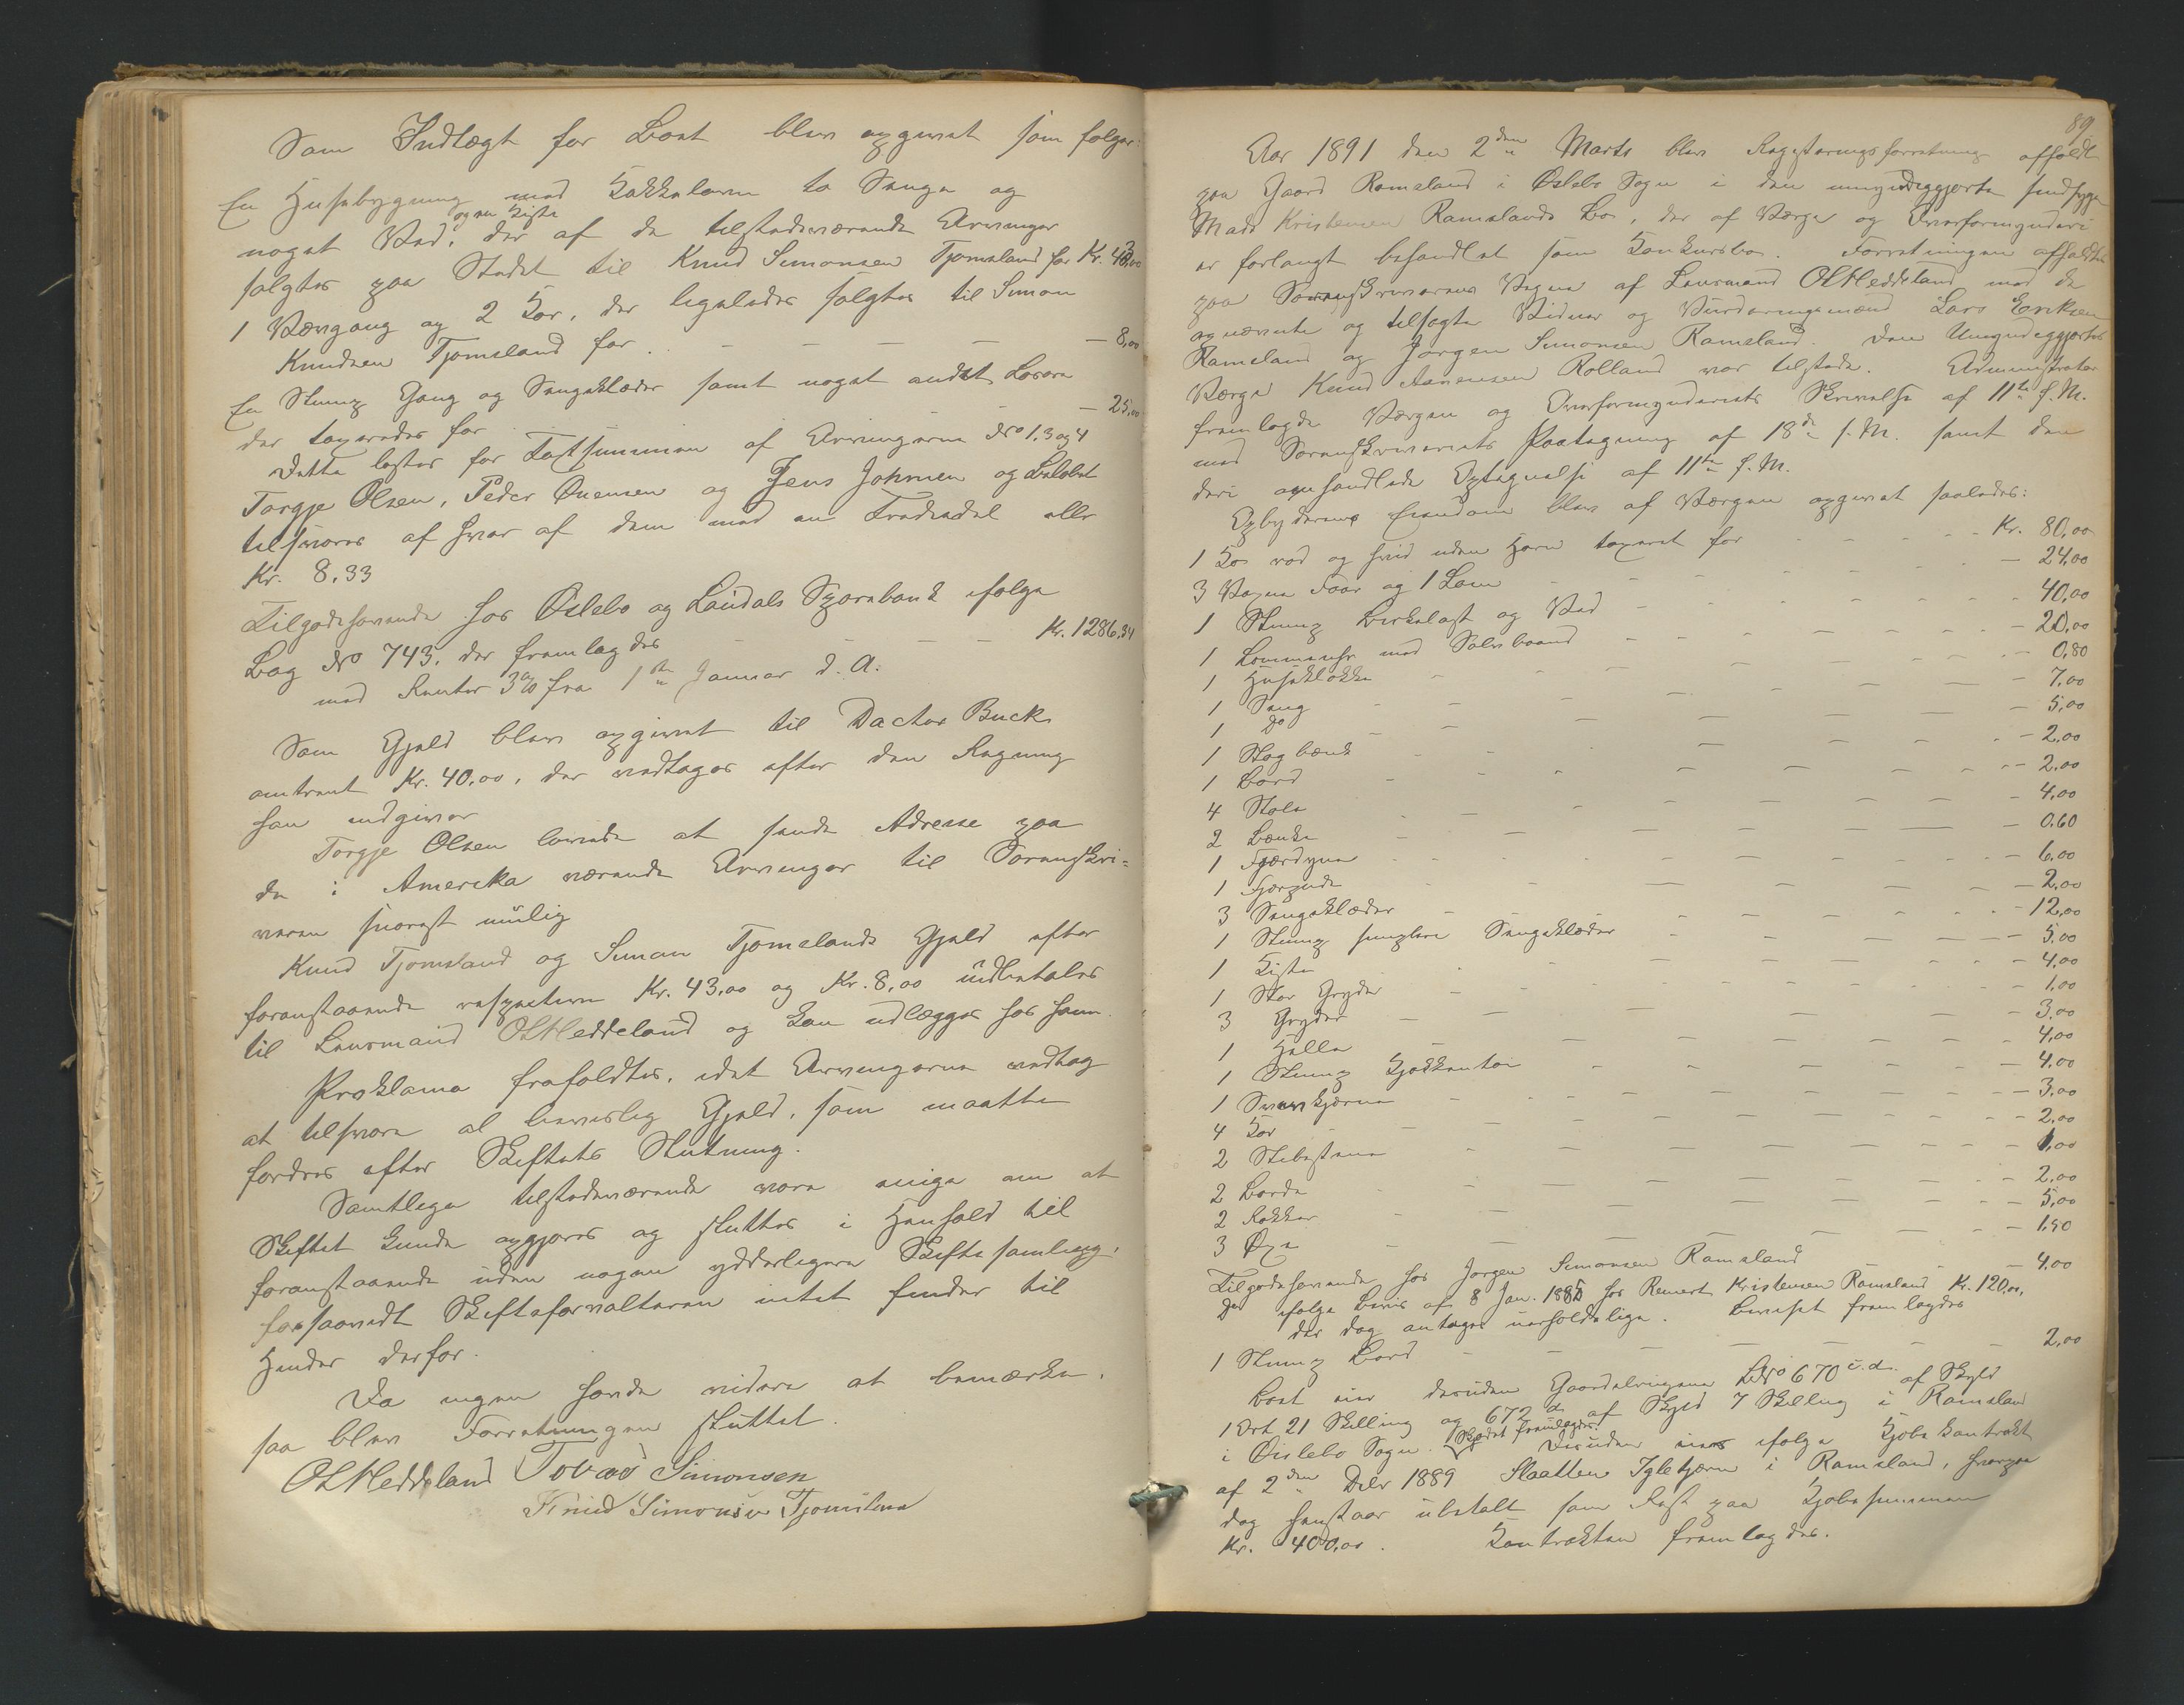 Som Indtægt for Boet blev opgivet som følger:
En Husebygning med Kakkelovn to Senge og
og en Kiste
noget Ved, der af de tilstedeværende Arvinger
solgtes paa Stedet til Knud Simonsen Tjomsland for Kr. 43,00
1 Vævgang og 2 Kar, der ligeledes solgtes til Simon
Knudsen Tjomsland for — — — — — 8,00
En Slump Gang og Sengeklæder samt noget andet Løsøre
der taxeredes for — 25,00
Dette lostes for Taxtsummen af Arvingerne No 1, 3 og 4
Torgje Olsen, Peder Ovensen og Jens Johnsen og Beløbet
tilsvares af hver af dem med en Trediedel eller
Kr. 8,33
Tilgodehavende hos Øslebø og Laudals Sparebank ifølge
Bog No 743, der fremlagdes — — — — Kr. 1286,34
med Renter 3% fra 1ste Januar d. A.
Som Gjæld blev opgivet til Doctor Buck
omtrent Kr. 40,00, der vedtages efter den Regning
han indgiver
Torgje Olsen lovede at sende Adresse paa
de i Amerika værende Arvinger til Sorenskri=
veren snarest mulig
Knud Tjomsland og Simon Tjomslands Gjæld efter
foranstaaende respective Kr. 43,00 og Kr. 8,00 indbetales
til Lensmand OAHeddeland og kan udlægges hos ham.
Proklama frafaldtes, idet Arvingerne vedtog
at tilsvare al beviselig Gjæld, som maatte
fordres efter Skiftets Slutning.
Samtlige tilstedeværende vare enige om at
Skiftet kunde opgjøres og sluttes i Henhold til
foranstaaende uden nogen yderligere Skiftesamling,
forsaavidt Skifteforvalteren intet finder til
Hinder derfor.
Da ingen havde videre at bemærke,
saa blev Forretningen sluttet.
OAHeddeland Tobias Simonsen
Knud Simonsen Tjomsland
89
Aar 1891 den 2den Marts blev Registreringsforretning afholdt
paa Gaard Rameland i Øslebø Sogn i den umyndiggjorte sindssyge
Mads Kristensen Ramslands Bo, der af Værge og Overformynderi
er forlangt behandlet som Konkursbo. Forretningen afholdtes
paa Sorenskriverens Vegne af Lensmand OAHeddeland med de
opnævnte og tilsagte Vidner og Vurderingsmænd Lars Eriksen
Rameland og Jørgen Simonsen Rameland. Den Umyndiggjortes
Værge Knud Asvensen Rolland var tilstede. Administrator
fremlagde Værgen og Overformynderiets Skrivelse af 11te f. M.
med Sorenskriveriets Paategning af 18de f. M. samt den
deri omhandlede Optegnelse af 11te f. M.
Opbyderens Eiendom blev af Værgen opgivet saaledes:
1 Ko rød og hvid uden Horn taxeret for — Kr. 80,00
3 Voxne Faar og 1 Lam — 24,00
1 Slump Birkelast og Ved — 40,00
1 Lommeuhr med Sølvbaand — 20,00
1 Huseklokke — 0,80
1 Seng — 7,00
1 Do — 5,00
1 Slagbænk — 2,00
1 Bord — 2,00
4 Stole — 4,00
2 Bænke — 0,60
1 Fjærdyne — 6,00
1 Fjærpude — 2,00
3 Sengeklæder — 12,00
1 Slump simplere Sengeklæder — 5,00
1 Kiste — 4,00
1 Stor Gryde — 1,00
3 Gryder — 3,00
1 Helle — 4,00
1 Slump Kjøkkentøi — 4,00
1 Svingkjærne — 3,00
4 Kar — 2,00
2 Slibestene — 1,00
2 Borde — 2,00
2 Rokker — 5,00
3 Øxe — 1,50
Tilgodehavende hos Jørgen Simonsen Rameland — 4,00
Do ifølge Bevis af 8 Jan. 1885 hos Reinert Kristensen Rameland Kr. 120,00,
der dog antages uerholdelige. Beviset fremlagdes
1 Slump Bord — — — — 2,00
Boet eier desuden Gaardelingerne LNo 670 c. d. af Skyld
1 Ort 21 Skilling og 672 d. af Skyld 7 Skilling i Rameland
i Øislebø Sogn. Skjødet fremlagdes. Desuden eies ifølge Kjøbekontrakt
af 2den Debr 1889 Slaatten Igletjærn i Rameland, hvorpaa
dog henstaar ubetalt som Rest paa Kjøbesummen
Kr. 400,00. Kontrakten fremlagdes.